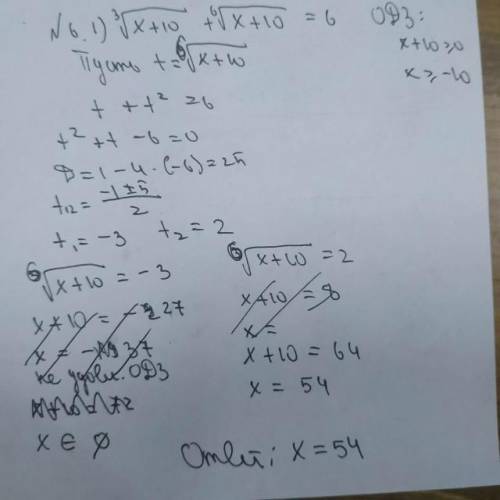 №6. 1) ∛(x+10) + ⁶√(x+10) = 6
ОДЗ:
x+10≥0
x≥-10
Пусть t=⁶√(x+10)
t + t² = 6
t² + t - 6 = 0
D = 1 - 4·(-6) = 25
t₁₂ = (-1±5)/2
t₁ = -3 t₂ = 2
⁶√(x+10) = -3
x+10 = -27
x = -37
не удовл. ОДЗ
x ∈ ∅
⁶√(x+10) = 2
x+10 = 8
x =
x+10 = 64
x = 54
Ответ: x = 54